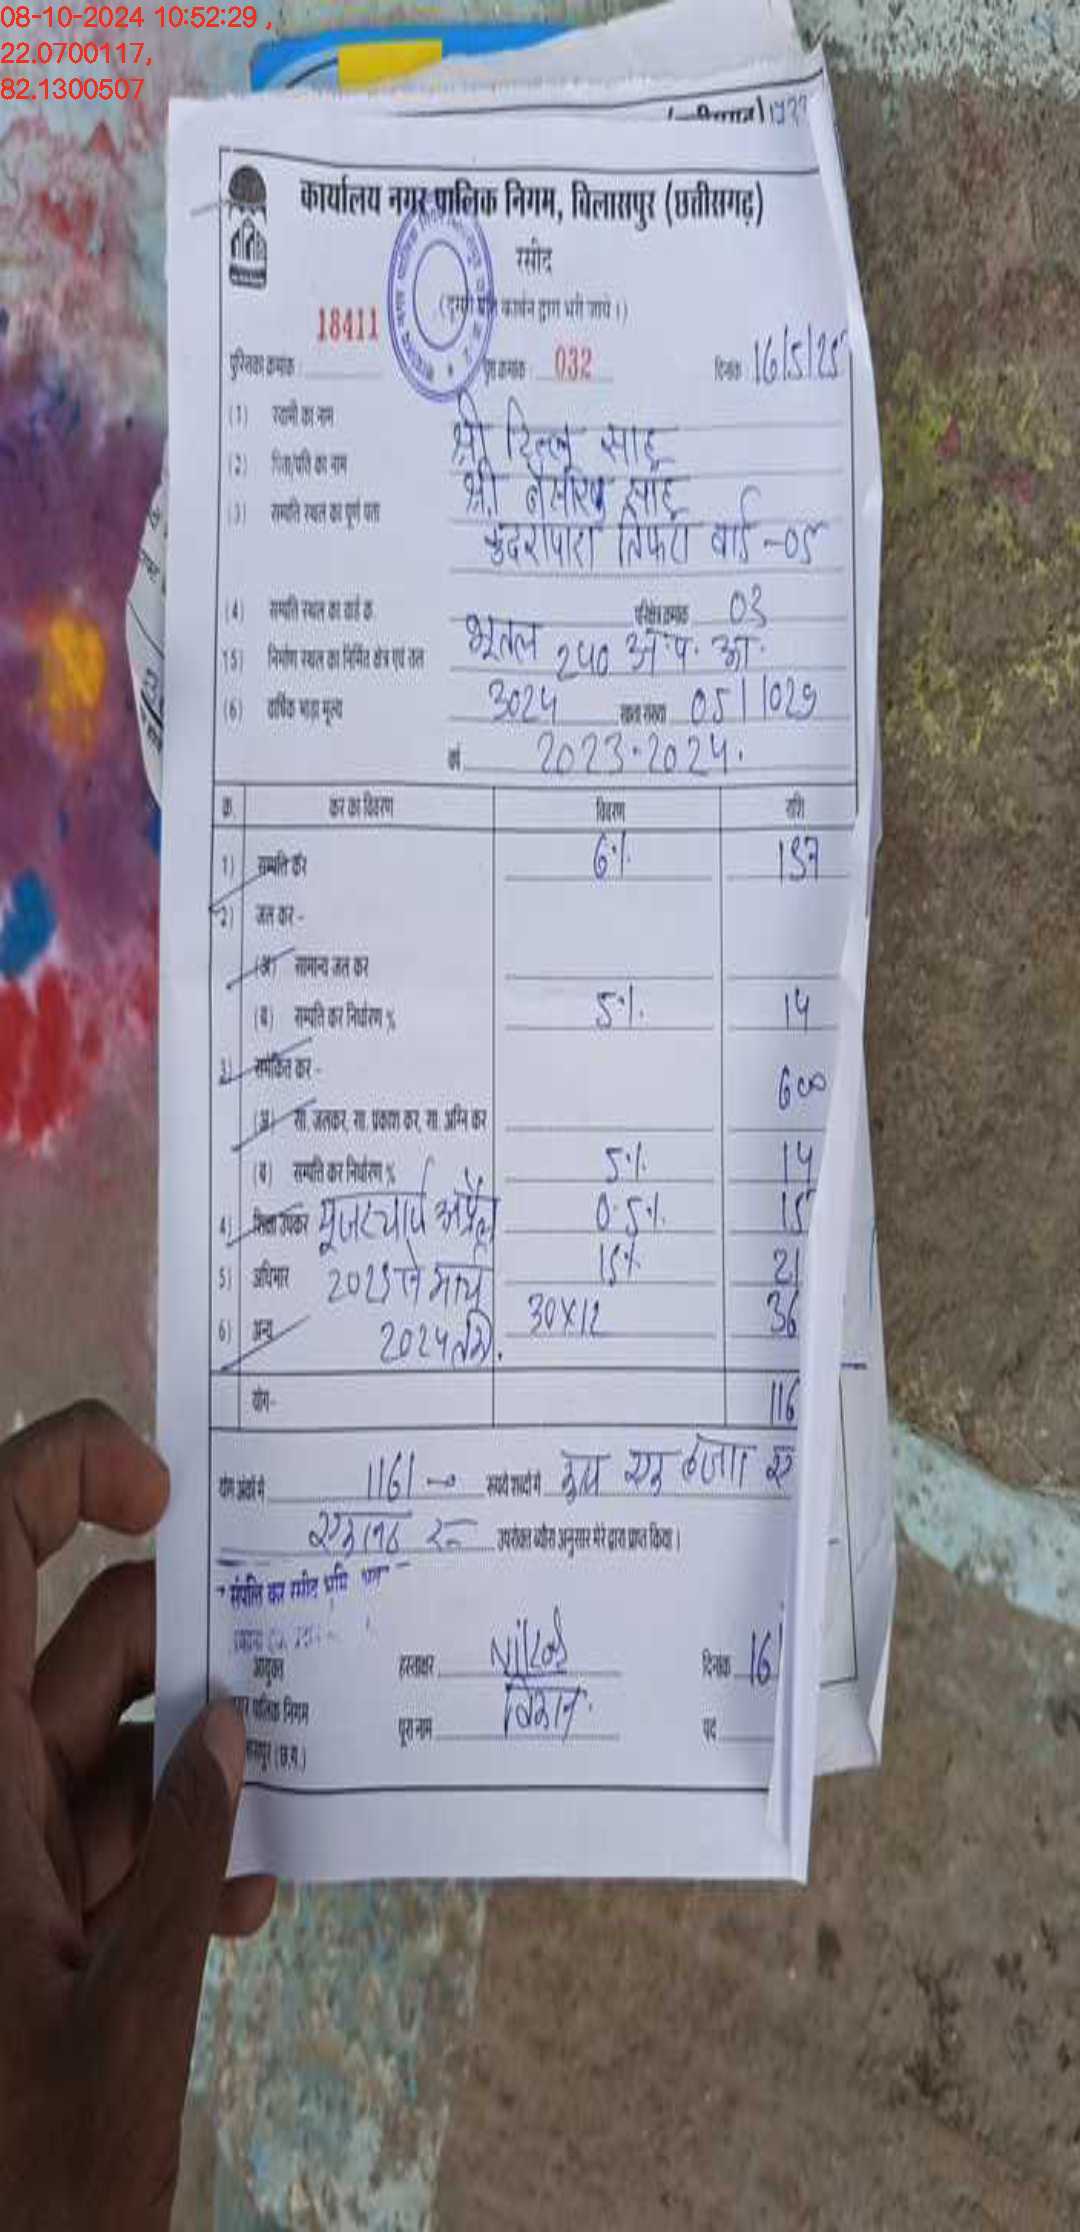 08-10-2024 10:52:29 ,
22.0700117,
82.1300507
कार्यालय नगर पालिक निगम, बिलासपुर (छत्तीसगढ़)
रसीद
(दूसरी प्रति कार्बन द्वारा भरी जाये।)
पुस्तिका क्रमांक : 18411 पृष्ठ क्रमांक : 032 दिनांक 16/5/23
(1) स्वामी का नाम श्री साहू
(2) पिता/पति का नाम श्री साहू
(3) सम्पत्ति स्थल का पूर्ण पता तिफरा वार्ड -05
(4) सम्पत्ति स्थल का वार्ड क्र. परिक्षेत्र क्रमांक 03
(5) निर्माण स्थल का निर्मित क्षेत्र एवं तल भूतल 240
(6) वार्षिक भाड़ा मूल्य 3024 खाता संख्या 05/1029
वर्ष 2023-2024.
क्र. कर का विवरण विवरण राशि
1) सम्पत्ति कर 6% 137
2) जल कर -
(अ) सामान्य जल कर
(ब) सम्पत्ति कर निर्धारण % 5% 14
3) समेकित कर - 600
(अ) सा. जलकर, सा. प्रकाश कर, सा. अग्नि कर
(ब) सम्पत्ति कर निर्धारण % 5% 14
4) शिक्षा उपकर यूजर चार्ज अप्रैल 0.5% 15
5) अधिभार 2023 से मार्च 15% 21
6) अन्य 2024 तक. 30x12 36
योग- 116
योग अंकों में 1161 रूपये शब्दों में कुल एक हजार
एकसठ रू उपरोक्त ब्यौरा अनुसार मेरे द्वारा प्राप्त किया।
संपत्ति कर रसीद भूमि
आयुक्त हस्ताक्षर दिनांक 16/
नगर पालिक निगम
पूरा नाम पद
बिलासपुर (छ.ग.)